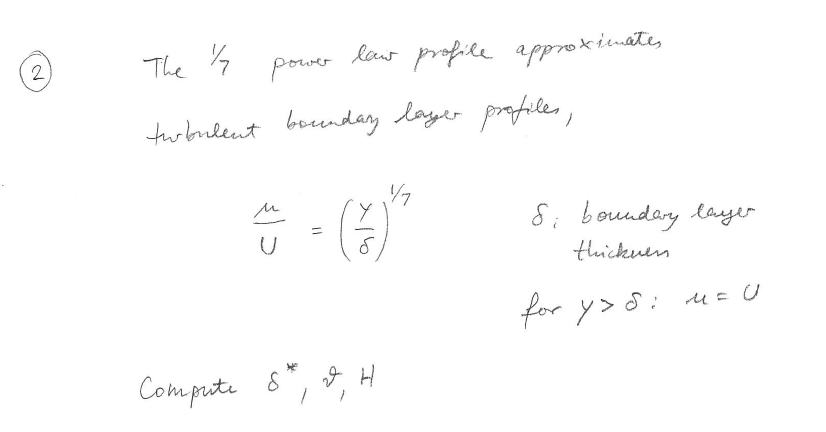 ② The 1/7 power law profile approximates
turbulent boundary layer profiles,
u/U = (y/δ)^{1/7}
δ: boundary layer
thickness
for y > δ: u = U
Compute δ*, ϑ, H